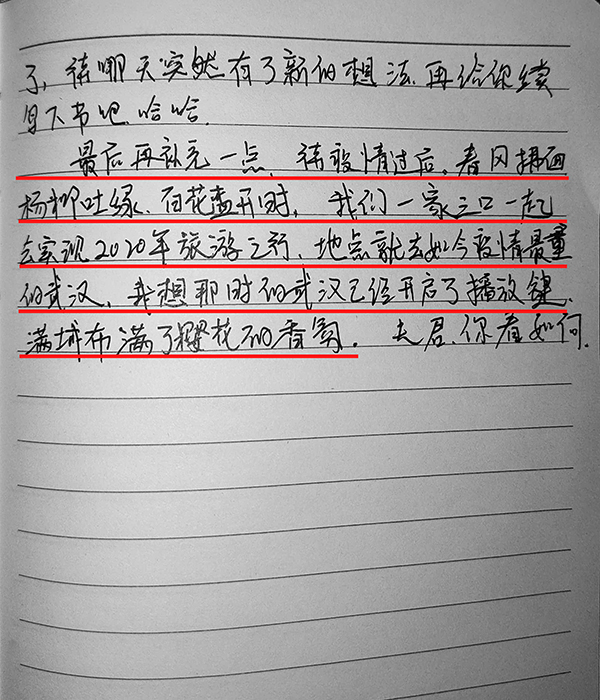 了，待哪天突然有了新的想法，再给你续
写下书吧，哈哈。
最后再补充一点，待疫情过后，春风拂面
杨柳吐绿、百花盛开时，我们一家三口一起
去实现2020年旅游之行，地点就去如今疫情最重
的武汉，我想那时的武汉已经开启了播放键，
满城布满了樱花的香氛。夫君，你看如何。